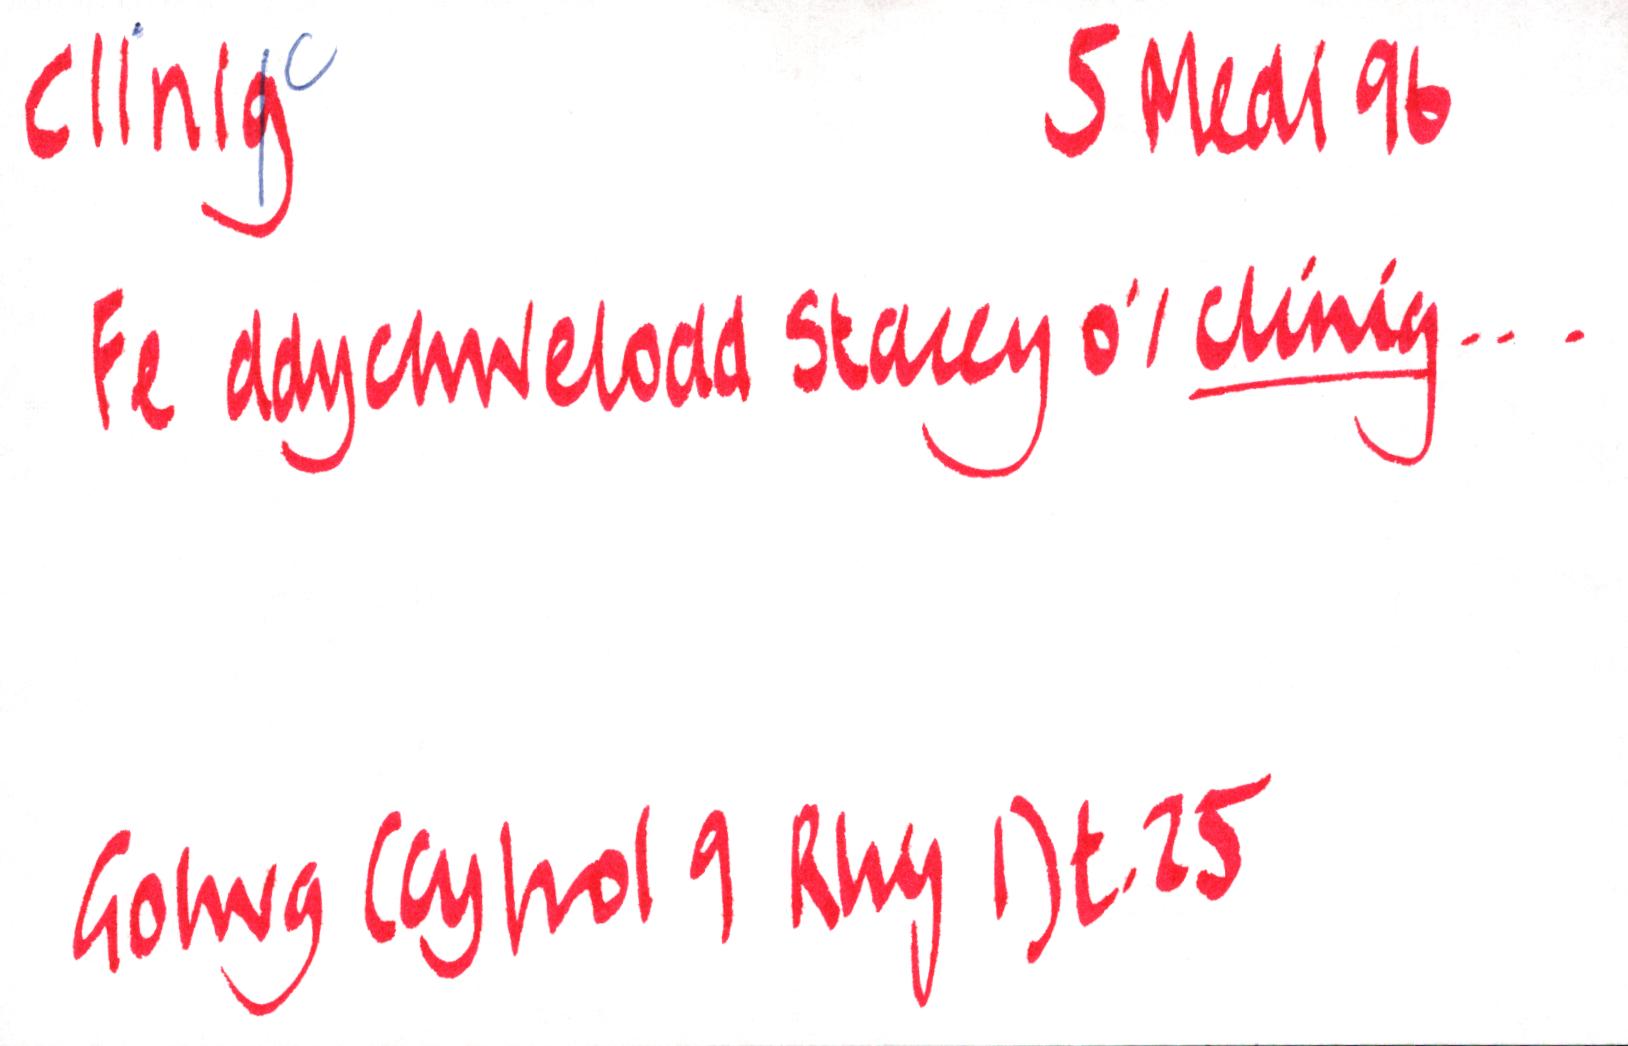 Clinig c 5 Medi 96
Fe ddychwelodd Stacey o'i clinig....
Golwg (Cyfrol 9 Rhy 1) t.25